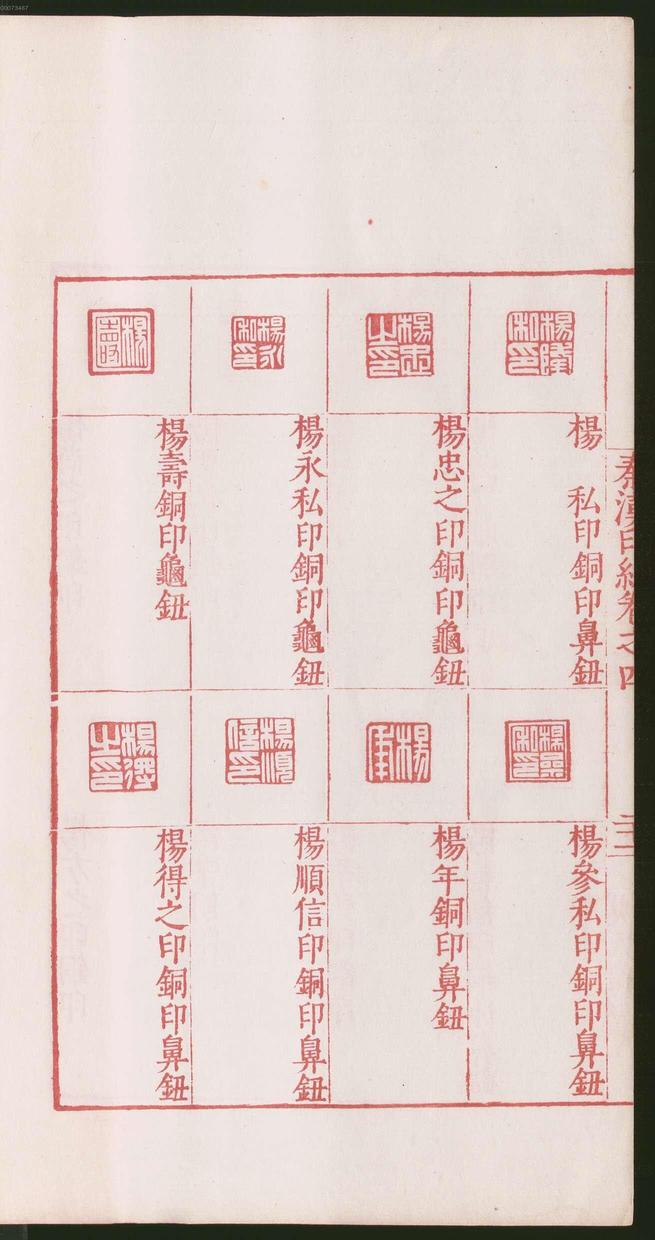 00073467
秦漢印統卷之四
二十一
楊　私印銅印鼻鈕
楊忠之印銅印龜鈕
楊永私印銅印龜鈕
楊壽銅印龜鈕
楊參私印銅印鼻鈕
楊年銅印鼻鈕
楊順信印銅印鼻鈕
楊得之印銅印鼻鈕